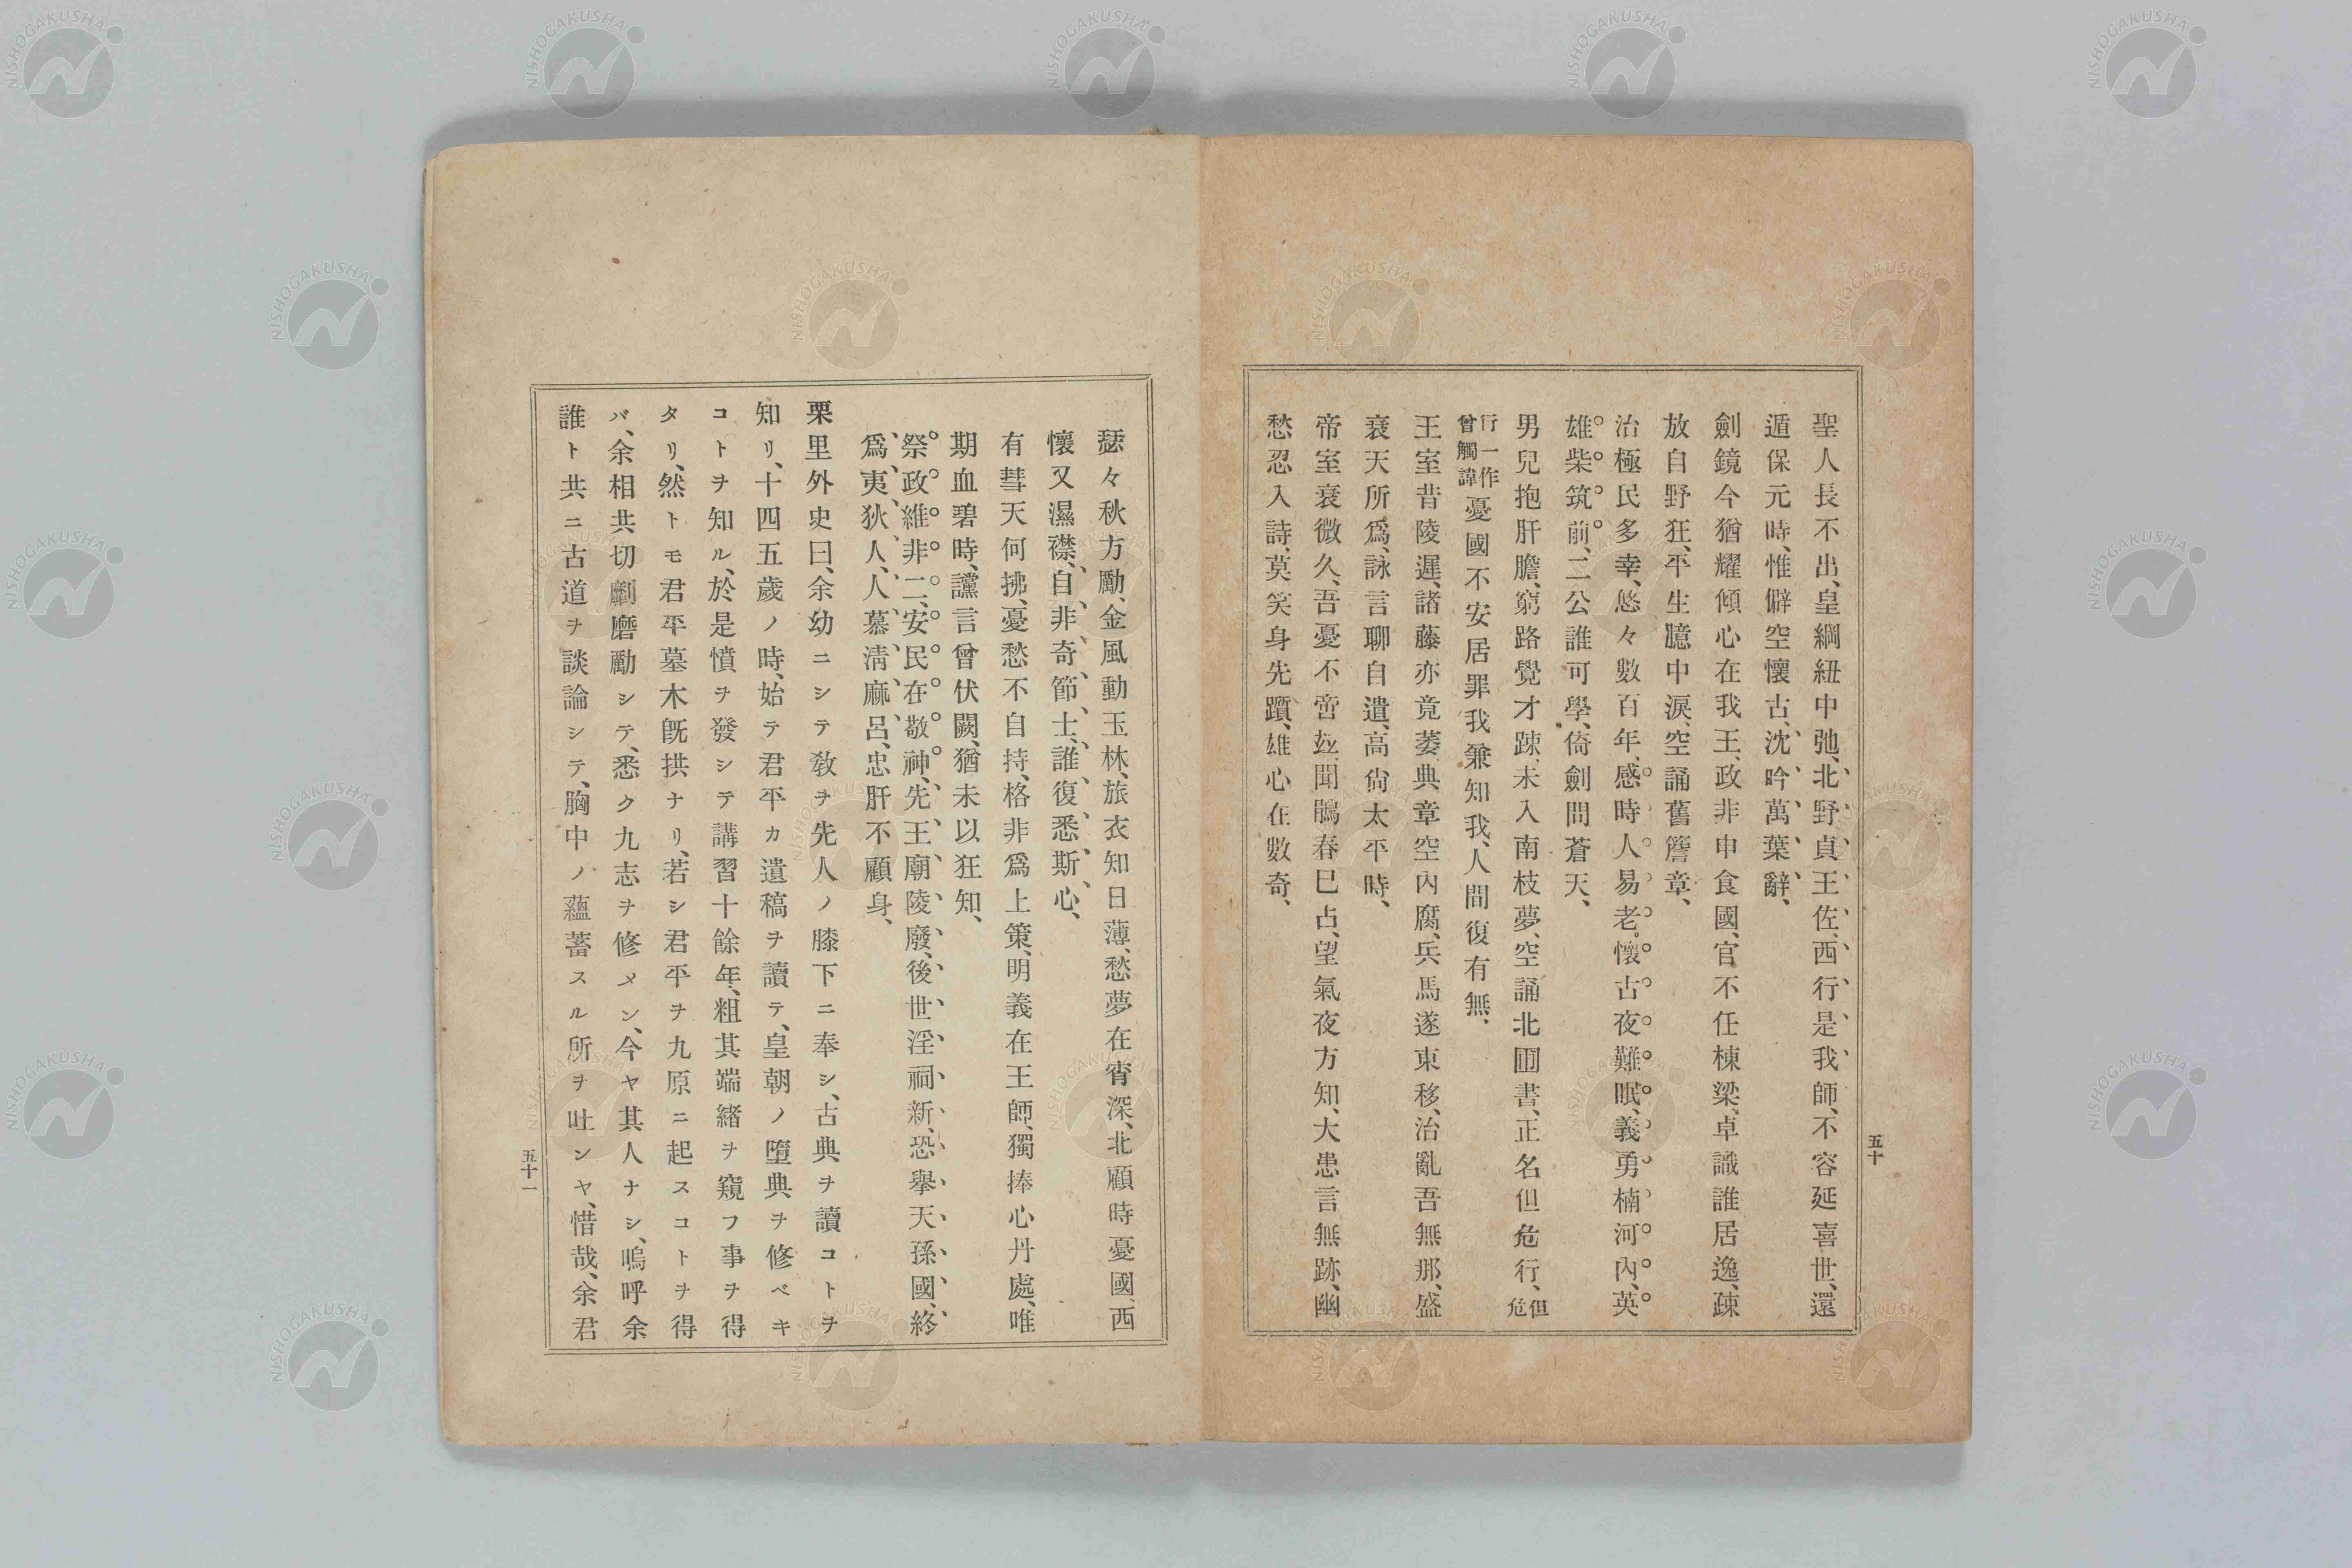 聖人長不出、皇綱紐中弛、北野貞王佐、西行是我師、不容延喜世、還
遁保元時、惟僻空懷古、沈吟萬葉辭、
劍鏡今猶耀傾心在我王、政非申食國、官不任棟梁、卓識誰居逸、疎
放自野狂、平生臆中淚、空誦舊簷章、
治極民多幸、悠々數百年、感時人易老。懷古夜難眠、義勇楠河內、英
雄柴筑前、二公誰可學、倚劍問蒼天、
男兒抱肝膽、窮路覺才踈、未入南枝夢、空誦北圃書、正名但危行、但危
行一作曾觸諱憂國不安居罪我兼知我、人間復有無、
王室昔陵遲、諸藤亦竟萎、典章空內腐、兵馬遂東移、治亂吾無那、盛
衰天所爲、詠言聊自遣、高尙太平時、
帝室衰微久、吾憂不啻玆、聞鵑春巳占、望氣夜方知、大患言無跡、幽
愁忍入詩、莫笑身先躓、雄心在數奇、
五十
瑟々秋方勵、金風動玉林、旅衣知日薄、愁夢在宵深、北顧時憂國、西
懷又濕襟、自非奇節士、誰復悉斯心、
有彗天何拂、憂愁不自持、格非爲上策、明義在王師、獨捧心丹處、唯
期血碧時、讜言曾伏闕、猶未以狂知、
祭政維非二、安民在敬神、先王廟陵廢、後世淫祠新、恐擧天孫國、終
爲夷狄人、人慕淸麻呂、忠肝不顧身、
栗里外史曰、余幼ニシテ敎ヲ先人ノ膝下ニ奉シ、古典ヲ讀コトヲ
知リ、十四五歲ノ時、始テ君平カ遺稿ヲ讀テ、皇朝ノ墮典ヲ修ベキ
コトヲ知ル、於是憤ヲ發シテ講習十餘年、粗其端緖ヲ窺フ事ヲ得
タリ、然トモ君平墓木旣拱ナリ、若シ君平ヲ九原ニ起スコトヲ得
バ、余相共切劘磨勵シテ、悉ク九志ヲ修メン、今ヤ其人ナシ、嗚呼余
誰ト共ニ古道ヲ談論シテ、胸中ノ蘊蓄スル所ヲ吐ンヤ、惜哉、余君
五十一
NISHOGAKUSHA